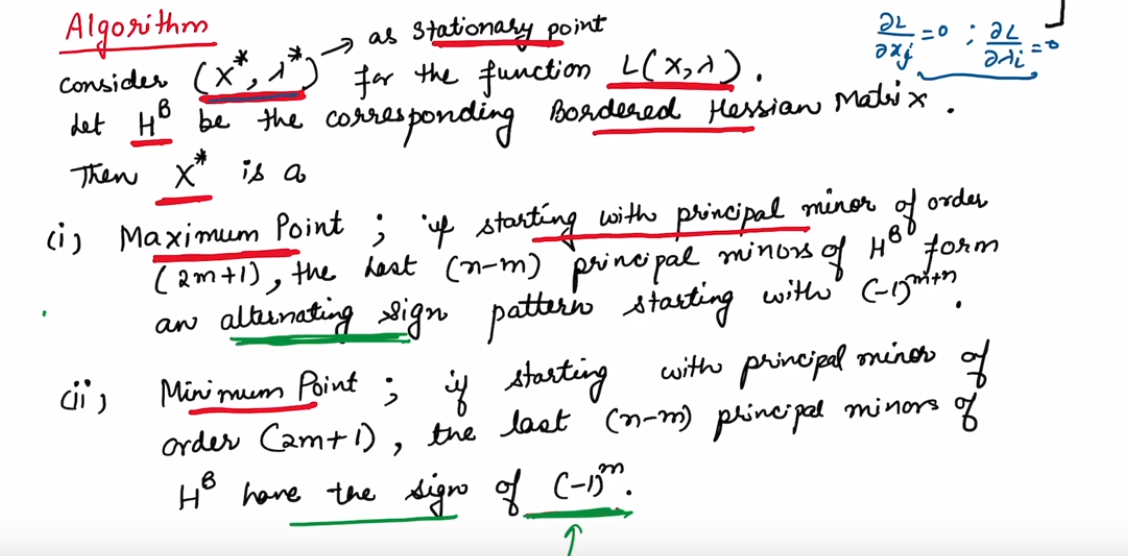 Algorithm
∂L/∂xj = 0 ; ∂L/∂λi = 0
Consider (X*, λ*) → as stationary point
for the function L(X, λ).
Let H^B be the corresponding Bordered Hessian Matrix.
Then X* is a
(i) Maximum Point ; if starting with principal minor of order
(2m+1), the last (n-m) principal minors of H^B form
an alternating sign pattern starting with (-1)^m+n.
(ii) Minimum Point ; if starting with principal minor of
order (2m+1), the last (n-m) principal minors of
H^B have the sign of (-1)^m.